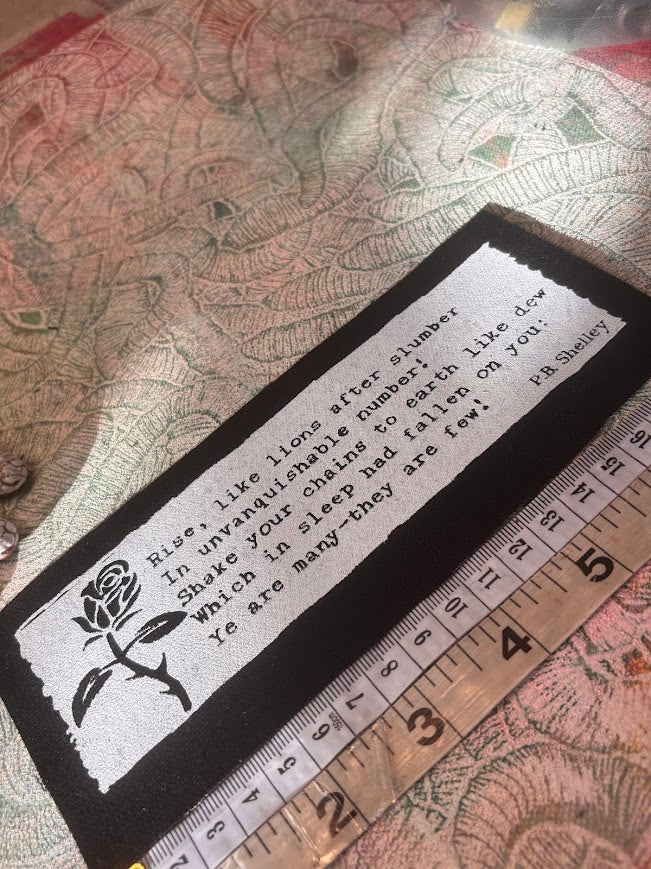 Rise, like lions after slumber
In unvanquishable number!
Shake your chains to earth like dew
Which in sleep had fallen on you:
Ye are many—they are few!
P.B. Shelley
2 3 4 5 6 7 8 9 10 11 12 13 14 15 16
2 3 4 5